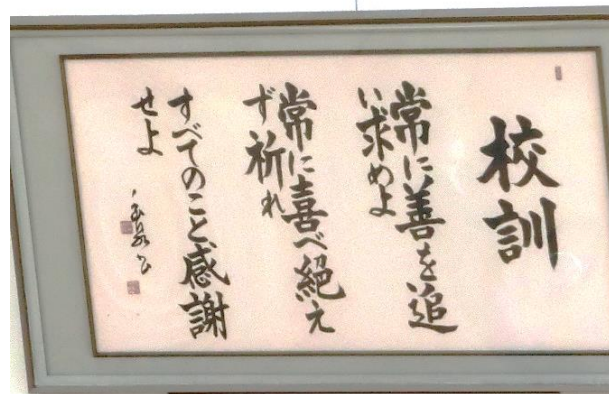 校訓
常に善を追
い求めよ
常に喜べ絶え
ず祈れ
すべてのこと感謝
せよ